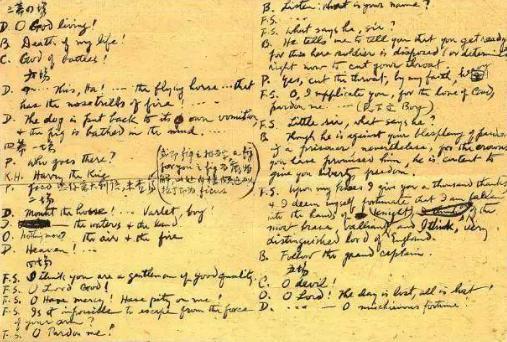 三幕七場
D. O God living!
B. Death of my life!
C. God of battles!
七場
D. .... This, Ha! ... the flying horse ... that
has the nosetrells of fire! ....
D. The dog is put back to its own vomition
& the pig is bathed in the mud. ...
四幕一場
P. Who goes there?
K.H. Harry the King
P.
二場
D. Mount the horse! ... Varlet, boy
D. the waters & the land.
O. nothing more? the air & the fire
D. Heaven! ...
四場
F.S. I think you are a gentleman of good quality.
F.S. O Lord God!
F.S. O Have mercy! Have pity on me!
F.S. Is it impossible to escape from the force
of your arm?
F.S. O Pardon me!
B. Listen: what is your name?
F.S. ....
F.S. What says he, sir?
B. He tells me to tell you that you get ready
for this here soldier is disposed or determin
right now to cut your throat.
P. Yes, cut the throat, by my faith,
F.S. O, I supplicate you, for the love of God,
pardon me. ... Boy)
F.S. Little sir, what says he?
B. Though he is against your blasphemy of pardon
of a prisoner, nevertheless, for the crowns
you have promised him, he is content to
give you liberty, freedom.
F.S. Upon my knees I give you a thousand thanks
& I deem myself fortunate that I am fallen
into the hands of knight, the
most brave, valliant, and I think, very
distinguished lord of England.
B. Follow the grand captain.
五場
C. O devil!
O. O Lord! the day is lost, all is lost!
D. .... O mischievous fortune!